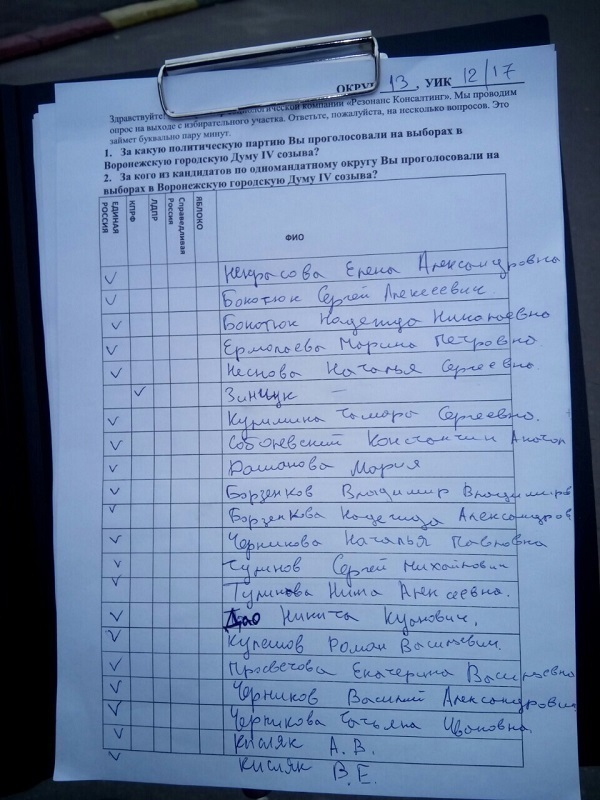 ОКРУГ 13, УИК 12/17
Здравствуйте, социологической компании «Резонанс Консалтинг». Мы проводим
опрос на выходе с избирательного участка. Ответьте, пожалуйста, на несколько вопросов. Это
займет буквально пару минут.
1. За какую политическую партию Вы проголосовали на выборах в
Воронежскую городскую Думу IV созыва?
2. За кого из кандидатов по одномандатному округу Вы проголосовали на
выборах в Воронежскую городскую Думу IV созыва?
ЕДИНАЯ
РОССИЯ
КПРФ
ЛДПР
Справедливая
Россия
ЯБЛОКО
ФИО
Некрасова Елена Александровна
Бокотюк Сергей Алексеевич.
Бокотюк Надежда Николаевна
Ермолаева Марина Петровна
Чеснова Наталья Сергеевна.
Зинчук —
Тамара Сергеевна.
Соболевский Константин Анатол
Мария
Борзенков Владимир Владимиров
Борзенкова Надежда Александров
Черникова Наталья Павловна
Сергей Михайлович
Нина Алексеевна.
Дао Никита Куанович.
Кулешов Роман Васильевич.
Просветова Екатерина Васильевна
Черников Василий Александрович
Черникова Татьяна Ивановна.
Кисляк А. В.
Кисляк В. Е.